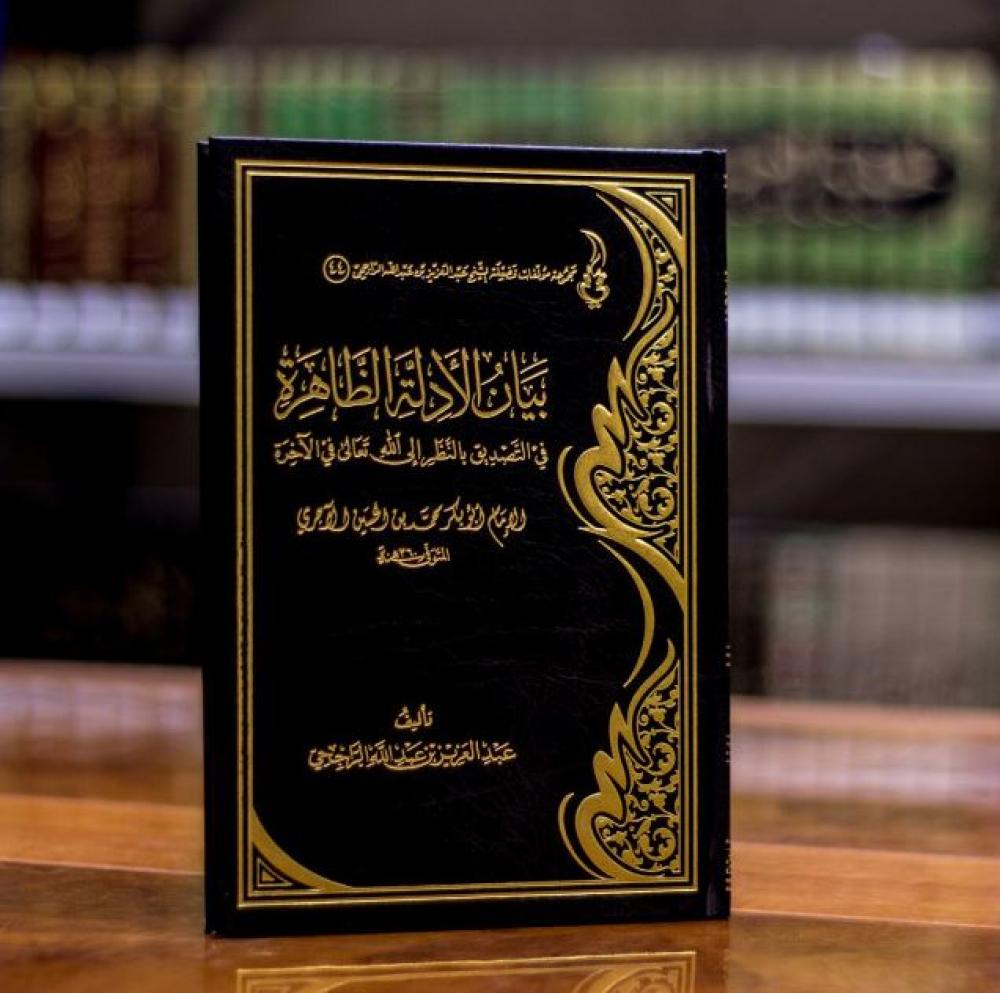 مجموعة مؤلفات فضيلة الشيخ عبد العزيز بن عبد الله الراجحي (٤٤)
بَيَانُ الأَدِلَّةِ الظَّاهِرَةِ
في التَّصْدِيقِ بِالنَّظَرِ إِلَى اللهِ تَعَالَى فِي الآخِرَةِ
الإمام أبو بكر محمد بن الحسين الآجري
المتوفى ٣٦٠ هـ
تأليفُ
عَبْدِ العَزِيزِ بْنِ عَبْدِ اللَّهِ الرَّاجِحِي